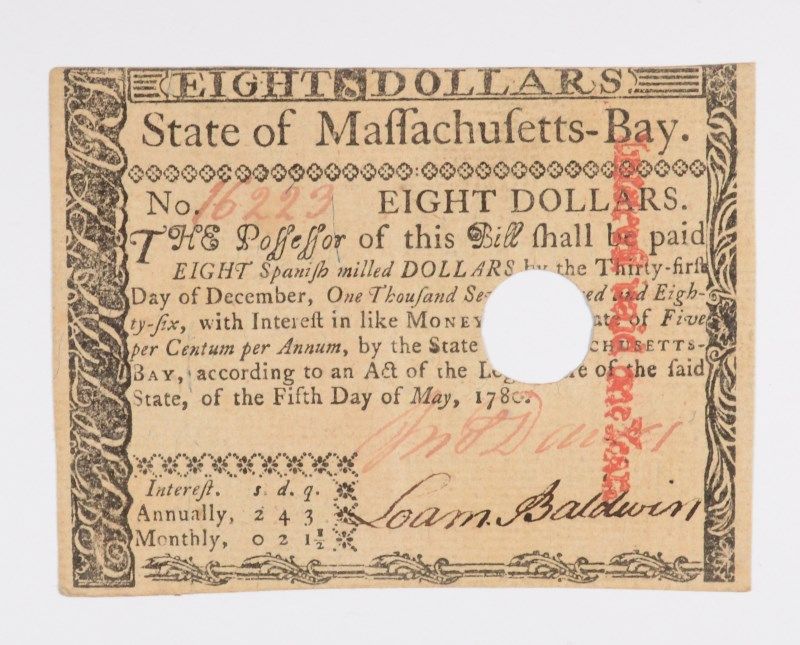 EIGHT 8 DOLLARS.
State of Maſſachuſetts-Bay.
No. 16223 EIGHT DOLLARS.
THE Poſſeſſor of this Bill ſhall be paid
EIGHT Spaniſh milled DOLLARS by the Thirty-firſt
Day of December, One Thouſand Se ed and Eigh-
ty-ſix, with Intereſt in like MONEY ate of Five
per Centum per Annum, by the State CHUSETTS-
BAY, according to an Act of the Leg re of the ſaid
State, of the Fifth Day of May, 1780.
Intereſt. s. d. q.
Annually, 2 4 3
Monthly, 0 2 1½
Loam. Baldwin